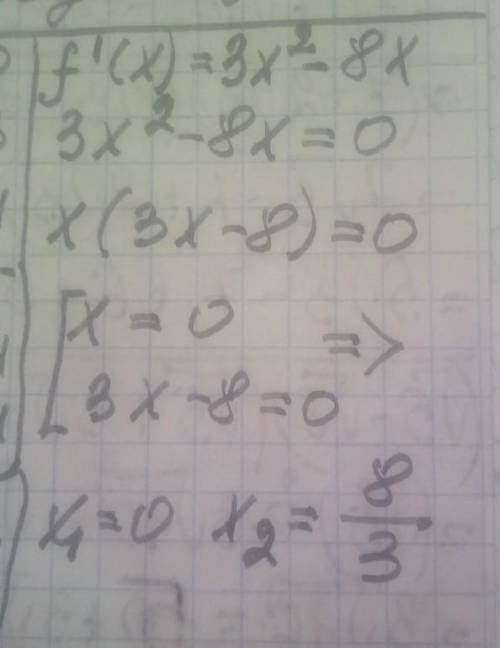 f'(x)=3x²-8x
3x²-8x=0
x(3x-8)=0
[x=0
3x-8=0 =>
x₁=0 x₂=8/3